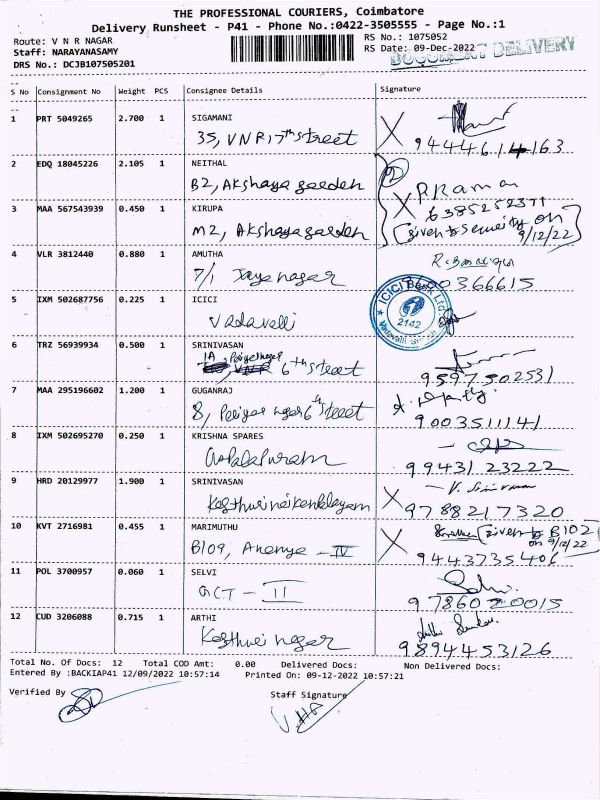 THE PROFESSIONAL COURIERS, Coimbatore
Delivery Runsheet - P41 - Phone No.:0422-3505555 - Page No.:1
Route: V N R NAGAR
RS No.: 1075052
Staff: NARAYANASAMY
RS Date: 09-Dec-2022
DOCUMENT DELIVERY
DRS No.: DCJB107505201
S No Consignment No Weight PCS Consignee Details Signature
1 PRT 5049265 2.700 1 SIGAMANI
35, VNR 17th street
9444614163
2 EDQ 18045226 2.105 1 NEITHAL
B2, Akshaya garden
P. Raman
6385252371
3 MAA 567543939 0.450 1 KIRUPA
M2, Akshaya garden
Given to security on
9/12/22
4 VLR 3812440 0.880 1 AMUTHA
7/1 Jaya nagar
9600366615
5 IXM 502687756 0.225 1 ICICI
Vadavalli
ICICI Bank Ltd
2142
Vadavalli Branch
6 TRZ 56939934 0.500 1 SRINIVASAN
1A, Periya nagar
6th street
9597502531
7 MAA 295196602 1.200 1 GUGANRAJ
8, Periyar nagar 6th street
9003511141
8 IXM 502695270 0.250 1 KRISHNA SPARES
Gopalapuram
99431 23222
9 HRD 20129977 1.900 1 SRINIVASAN
V. Srinivasan
9788217320
10 KVT 2716981 0.455 1 MARIMUTHU
B109, Ananya - IV
Given to B102
on 9/12/22
9443735406
11 POL 3700957 0.060 1 SELVI
GCT - II
9786020015
12 CUD 3206088 0.715 1 ARTHI
Kasthuri nagar
9894453126
Total No. Of Docs: 12 Total COD Amt: 0.00 Delivered Docs: Non Delivered Docs:
Entered By :BACKIAP41 12/09/2022 10:57:14 Printed On: 09-12-2022 10:57:21
Verified By
Staff Signature